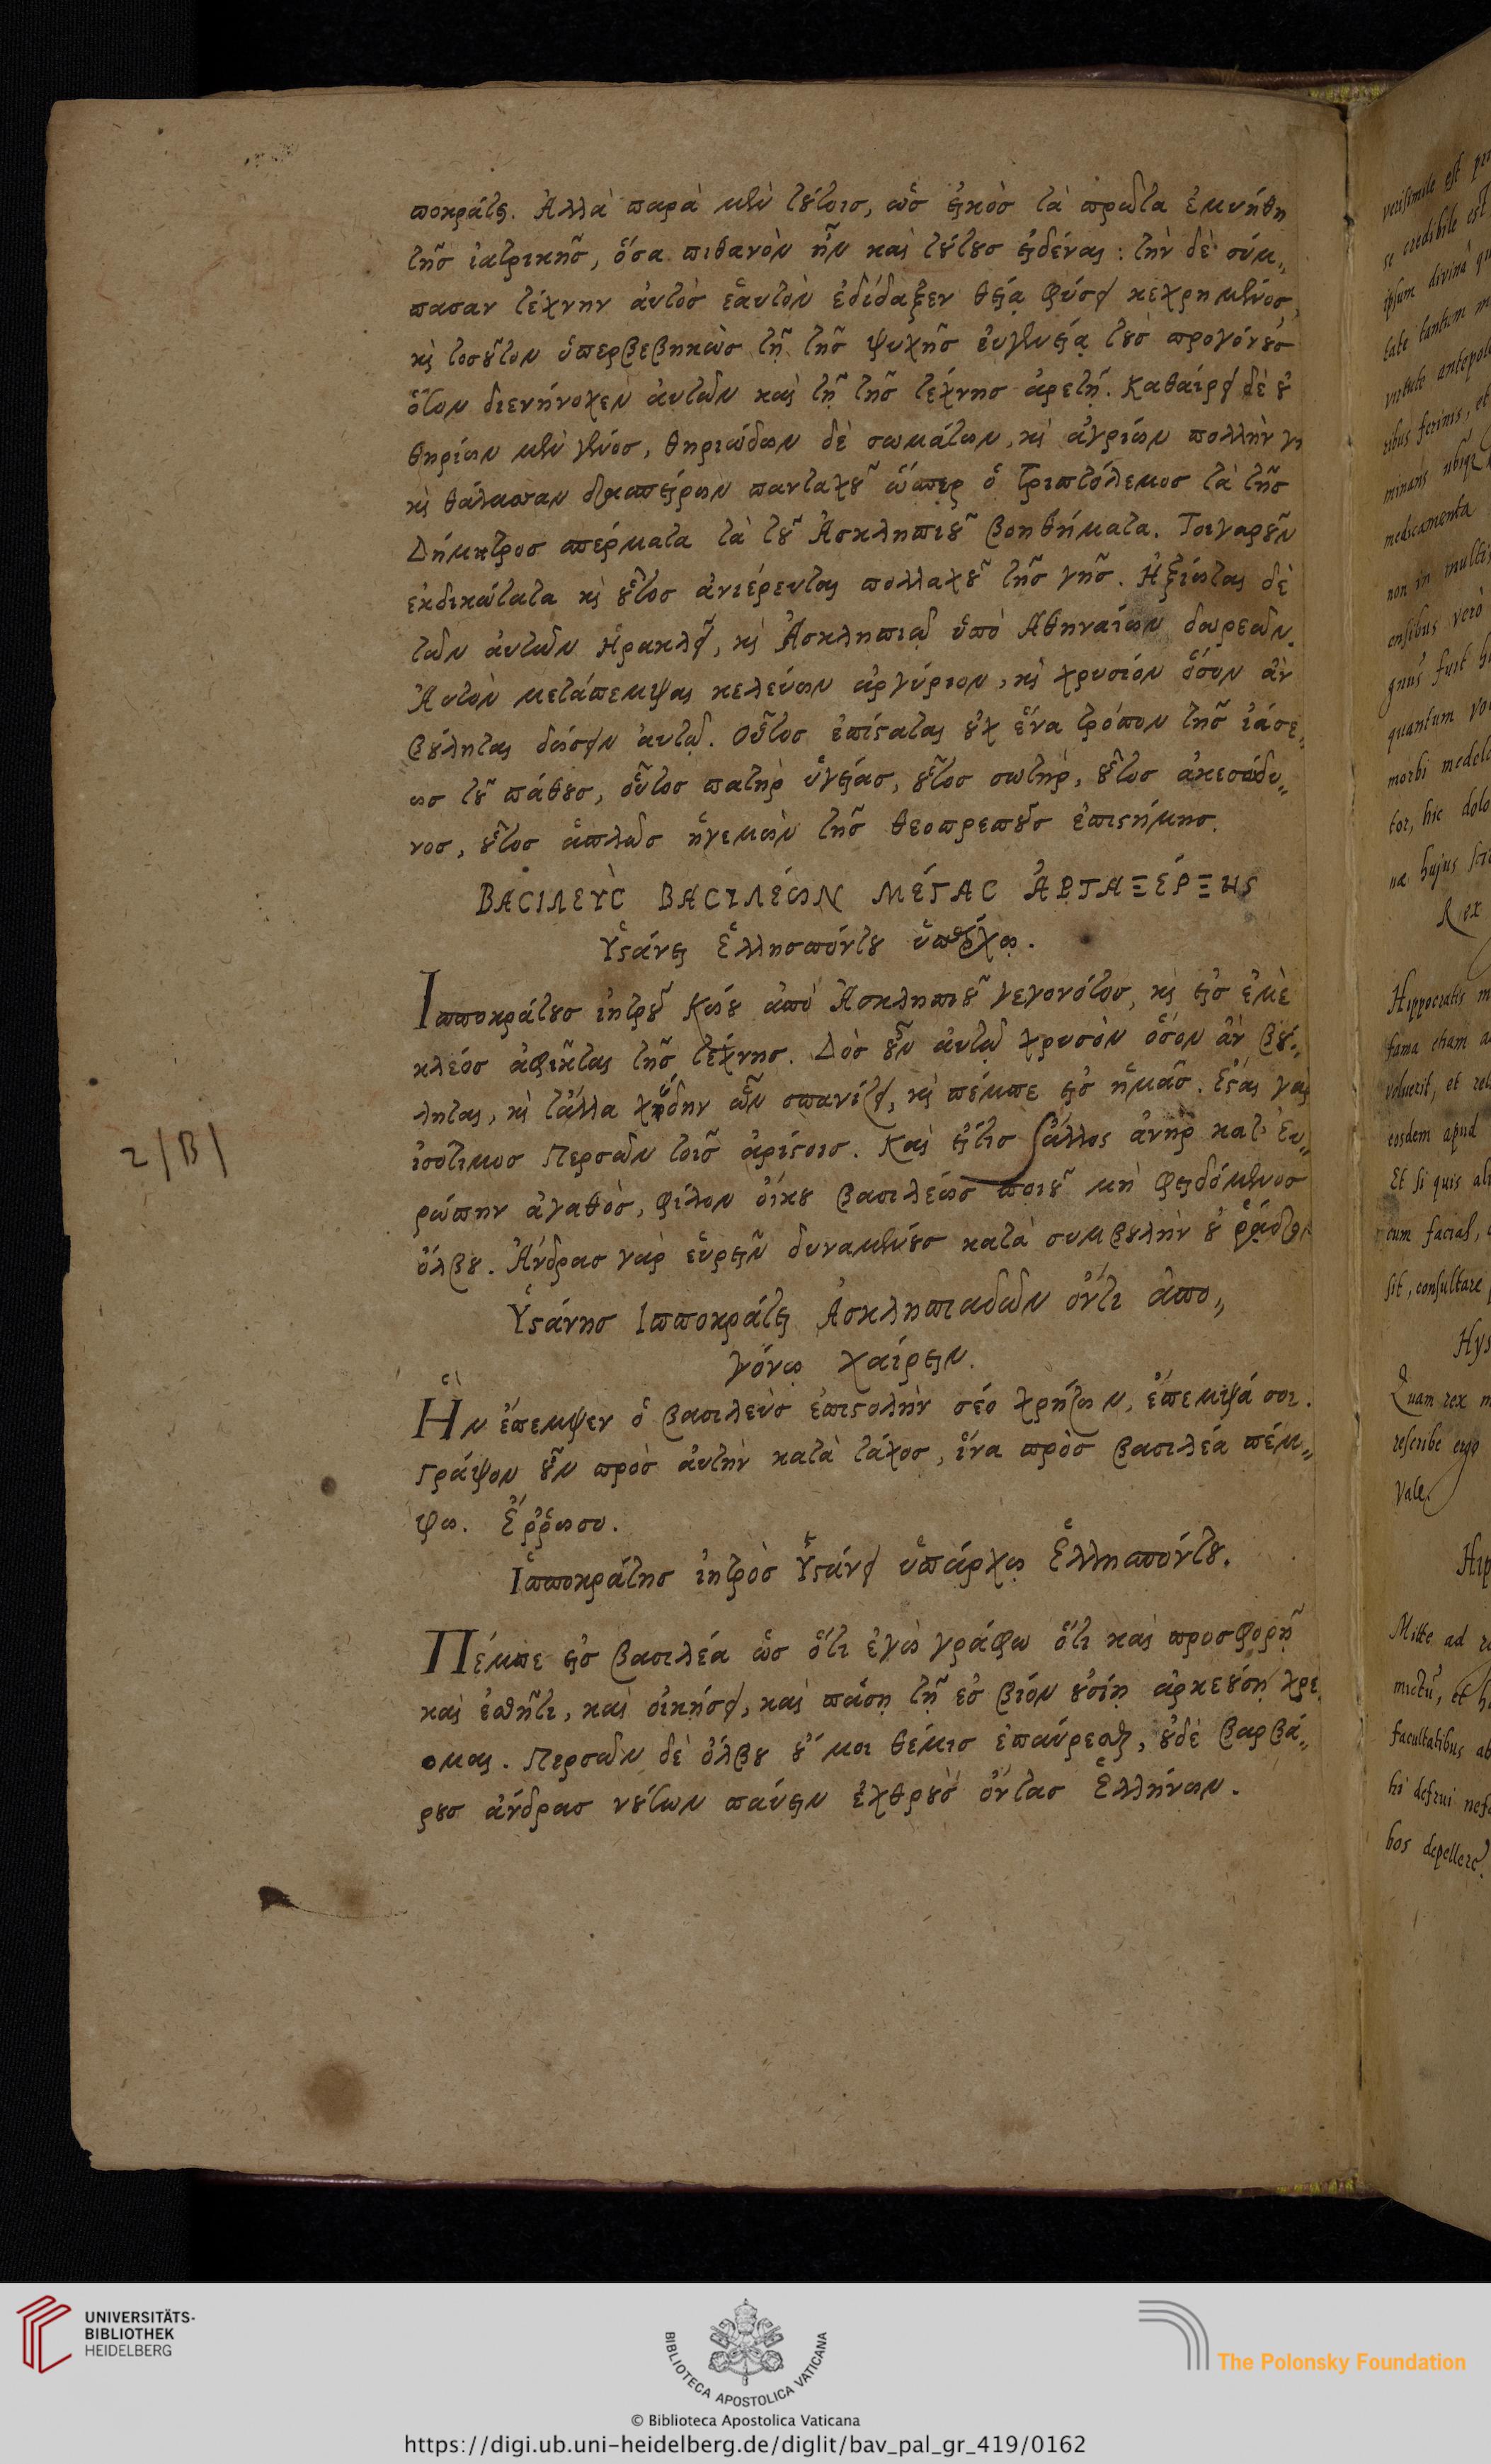 ποκράτει. Ἀλλὰ παρὰ μὲν τούτοις, ὡς εἰκὸς τὰ πρῶτα ἐμυήθη
τῆς ἰατρικῆς, ὅσα πιθανὸν ἦν καὶ τούτους εἰδέναι: τὴν δὲ σύμ„
πασαν τέχνην ἀυτὸς ἑαυτὸν ἐδίδαξεν θείᾳ φύσει κεχρημένος,
καὶ τοσοῦτον ὑπερβεβηκὼς τῇ τῆς ψυχῆς ἐυγενείᾳ τοὺς προγόνους
ὅσον διενήνοχεν ἀυτῶν καὶ τῇ τῆς τέχνης ἀρετῇ. Καθαίρει δὲ οὐ
θηρίων μὲν γένος, θηριώδων δὲ σωμάτων, καὶ ἀγρίων πολλὴν γῆ
καὶ θάλασσαν διασπείρων πανταχοῦ ὥσπερ ὁ Τριπτόλεμος τὰ τῆς
Δήμητρος σπέρματα τὰ τοῦ Ἀσκληπιοῦ βοηθήματα. Τοιγαροῦν
ἐνδικώτατα καὶ οὗτος ἀνιέρευται πολλαχοῦ τῆς γῆς. Ἠξίωται δὲ
τῶν ἀυτῶν Ἡρακλεῖ, καὶ Ἀσκληπιῷ ὑπὸ Ἀθηναίων δωρεῶν.
Ἀυτὸν μετάπεμψαι κελεύων ἀργύριον, καὶ χρυσίον ὅσον ἂν
βούληται δώσειν ἀυτῷ. Οὗτος ἐπίσταται οὐχ ἕνα τρόπον τῆς ἰάσε„
ως τοῦ πάθους, οὗτος πατὴρ ὑγείας, οὗτος σωτὴρ, οὗτος ἀκεσώδυ„
νος, οὗτος ἁπλῶς ἡγεμὼν τῆς θεοπρεποῦς ἐπιστήμης.
ΒΑϹΙΛΕῪϹ ΒΑϹΙΛΈωΝ ΜΈΓΑϹ ἈΡΤΑΞΈΡΞΗϚ
Ὑστάνει Ἑλλησπόντου ὑπάρχῳ.
Ἱπποκράτους ἰητροῦ Κώου ἀπὸ Ἀσκληπιοῦ γεγονότος, καὶ εἰς ἐμὲ
κλέος ἀφῖκται τῆς τέχνης. Δὸς οὖν ἀυτῷ χρυσὸν ὅσον ἂν βού„
ληται, καὶ τἄλλα χύδην ὧν σπανίζει, καὶ πέμπε εἰς ἡμᾶς. Ἔσται γὰρ
ἰσότιμος Περσῶν τοῖς ἀρίστοις. Καὶ εἴτις ἄλλος ἀνὴρ κατ' Ἐυ„
ρώπην ἀγαθὸς, φίλον ὄικου βασιλέως ποιοῦ μὴ φειδόμενος
ὄλβου. Ἄνδρας γὰρ εὑρεῖν δυναμένους κατὰ συμβουλὴν οὐ ῥᾴδιον
Ὑστάνης Ἱπποκράτει Ἀσκληπιαδῶν ὄντι ἀπο„
γόνῳ χαίρειν.
Ἣν ἔπεμψεν ὁ βασιλεὺς ἐπιστολὴν σέο χρήζων, ἔπεμψά σοι.
Γράψον οὖν πρὸς ἀυτὴν κατὰ τάχος, ἵνα πρὸς βασιλέα πέμ„
ψω. Ἔῤῥωσο.
Ἱπποκράτης ἰητρὸς Ὑστάνει ὑπάρχῳ Ἑλλησπόντου.
Πέμπε εἰς βασιλέα ὡς ὅτι ἐγὼ γράφω ὅτι καὶ προσφορῇ
καὶ ἐσθῆτι, καὶ οἰκήσει, καὶ πάσῃ τῇ ἐς βίον οὐσίῃ ἀρκεούσῃ χρε
ομαι. Περσῶν δὲ ὄλβου οὔ μοι θέμις ἐπαύρεσθαι, οὐδὲ βαρβά„
ρους ἄνδρας νούσων παύειν ἐχθροὺς ὄντας Ἑλλήνων.
2/B/
verisimile est
se credibile est
ipsum divina
tate tantum
virtute
ribus ferinis, et
minans ubiq
medicamenta
non in multis
ensibus vero
gnus fuit
quantum
morbi
tor, hic
næ hujus
Rex
Hippocratis
fama etiam
voluerit, et
eosdem apud
Et si quis
cum facias,
sit, consultare
Hys
Quam rex
rescribe ergo
Vale.
Hip
Mitte ad
mictu, et
facultatibus
hi defrui
bos depellere.
UNIVERSITÄTS-
BIBLIOTHEK
HEIDELBERG
BIBLIOTECA APOSTOLICA VATICANA
The Polonsky Foundation
© Biblioteca Apostolica Vaticana
https://digi.ub.uni-heidelberg.de/diglit/bav_pal_gr_419/0162